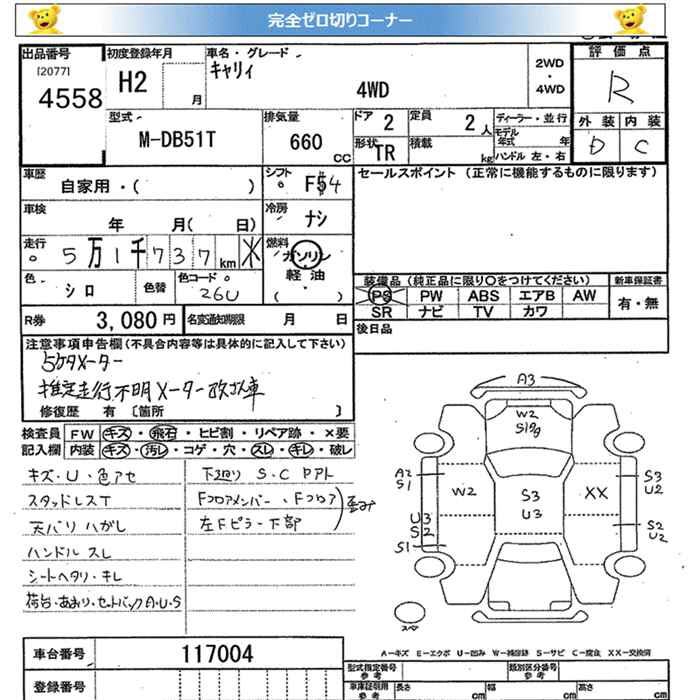 完全ゼロ切りコーナー
出品番号 初度登録年月 車名・グレード 2WD・4WD 評価点
[2077] キャリィ
4558 H2 月 4WD R
型式 排気量 ドア 2 定員 2人 ディーラー・並行 外装 内装
M-DB51T 660cc 形状 TR 積載 kg モデル年式 年 D C
ハンドル 左・右
車歴 シフト セールスポイント (正常に機能するものに限ります)
自家用・( ) F54
車検 冷房
年 月( 日) ナシ
走行 燃料
5万1千737km ※ ガソリン・軽油・( )
色 シロ 色替 色コード 26U
装備品 (純正品に限り○をつけてください) 新車保証書
PS PW ABS エアB AW 有・無
SR ナビ TV カワ
R券 3,080円 名変通知期限 月 日 後日品
注意事項申告欄(不具合内容等は具体的に記入して下さい)
5ケタメーター
推定走行不明メーター改ざん車
修復歴 有 〔箇所 〕
検査員 FW キズ・飛石・ヒビ割・リペア跡・×要
記入欄 内装 キズ・汚レ・コゲ・穴・スレ・キレ・破レ
キズ・U・色アセ 下廻り S・C Pアト
スタッドレスT Fフロアメンバー、Fフロア 歪み
天バリ ハガレ 左Fピラー下部
ハンドル スレ
シートヘタリ・キレ
荷台・あおり・セットバックA・U・S
A3
W2
S1
A2
S1
W2
S3
U3
XX
S3
U2
U3
S2
S2
U2
S1
スペ
A−キズ E−エクボ U−凹み W−補修跡 S−サビ C−腐食 XX−交換済
車台番号 117004
型式指定番号 参考 類別区分番号 参考
登録番号 車庫証明用 参考 長さ cm 幅 cm 高さ cm